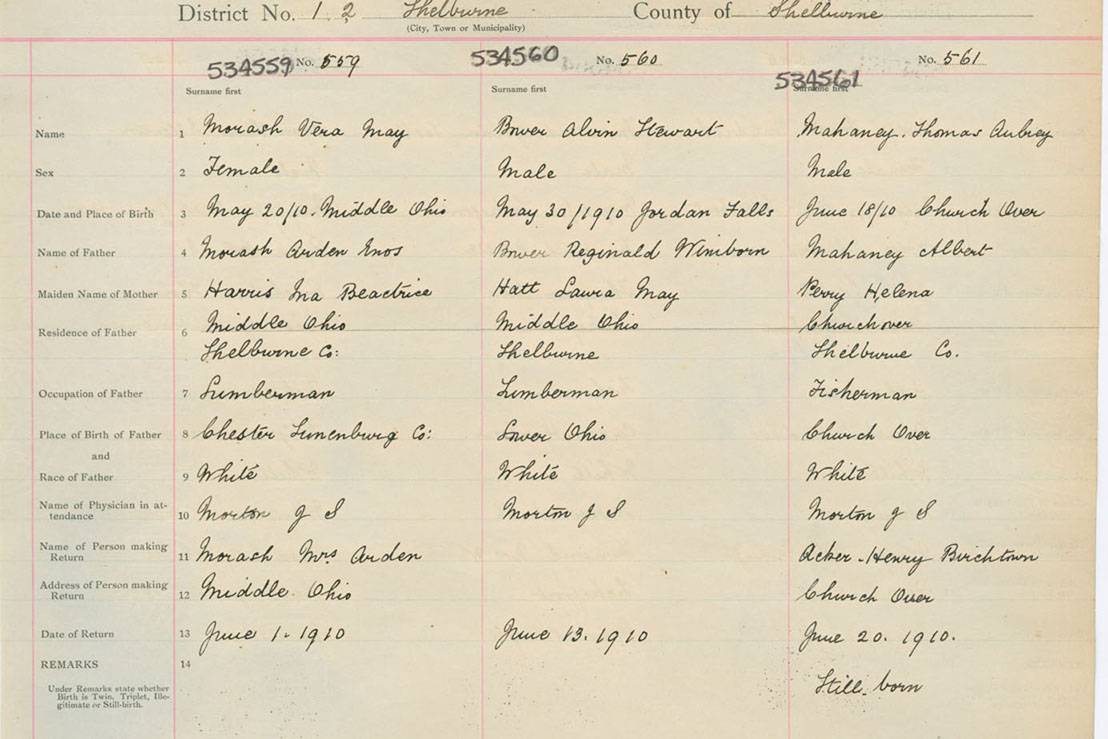 District No. 1 2 Shelburne County of Shelburne
(City, Town or Municipality)
534559 No. 559 534560 No. 560 534561 No. 561
Surname first Surname first Surname first
Name 1 Morash Vera May Bower Alvin Stewart Mahaney. Thomas Aubrey
Sex 2 Female Male Male
Date and Place of Birth 3 May 20/10. Middle Ohio May 30/1910 Jordan Falls June 18/10 Church Over
Name of Father 4 Morash Arden Enos Bower Reginald Winiborn Mahaney Albert
Maiden Name of Mother 5 Harris Ina Beactrice Hatt Laura May Perry Helena
Residence of Father 6 Middle Ohio Middle Ohio Churchover
Shelburne Co: Shelburne Shelburne Co.
Occupation of Father 7 Lumberman Lumberman Fisherman
Place of Birth of Father 8 Chester Lunenburg Co: Lower Ohio Church Over
and
Race of Father 9 White White White
Name of Physician in at-
tendance 10 Morton J S Morton J S Morton J S
Name of Person making
Return 11 Morash Mrs Arden Acker - Henry Birchtown
Address of Person making
Return 12 Middle Ohio Church Over
Date of Return 13 June 1. 1910 June 13. 1910 June 20. 1910.
REMARKS 14
Under Remarks state whether
Birth is Twin, Triplet, Ille-
gitimate or Still-birth.
Still born